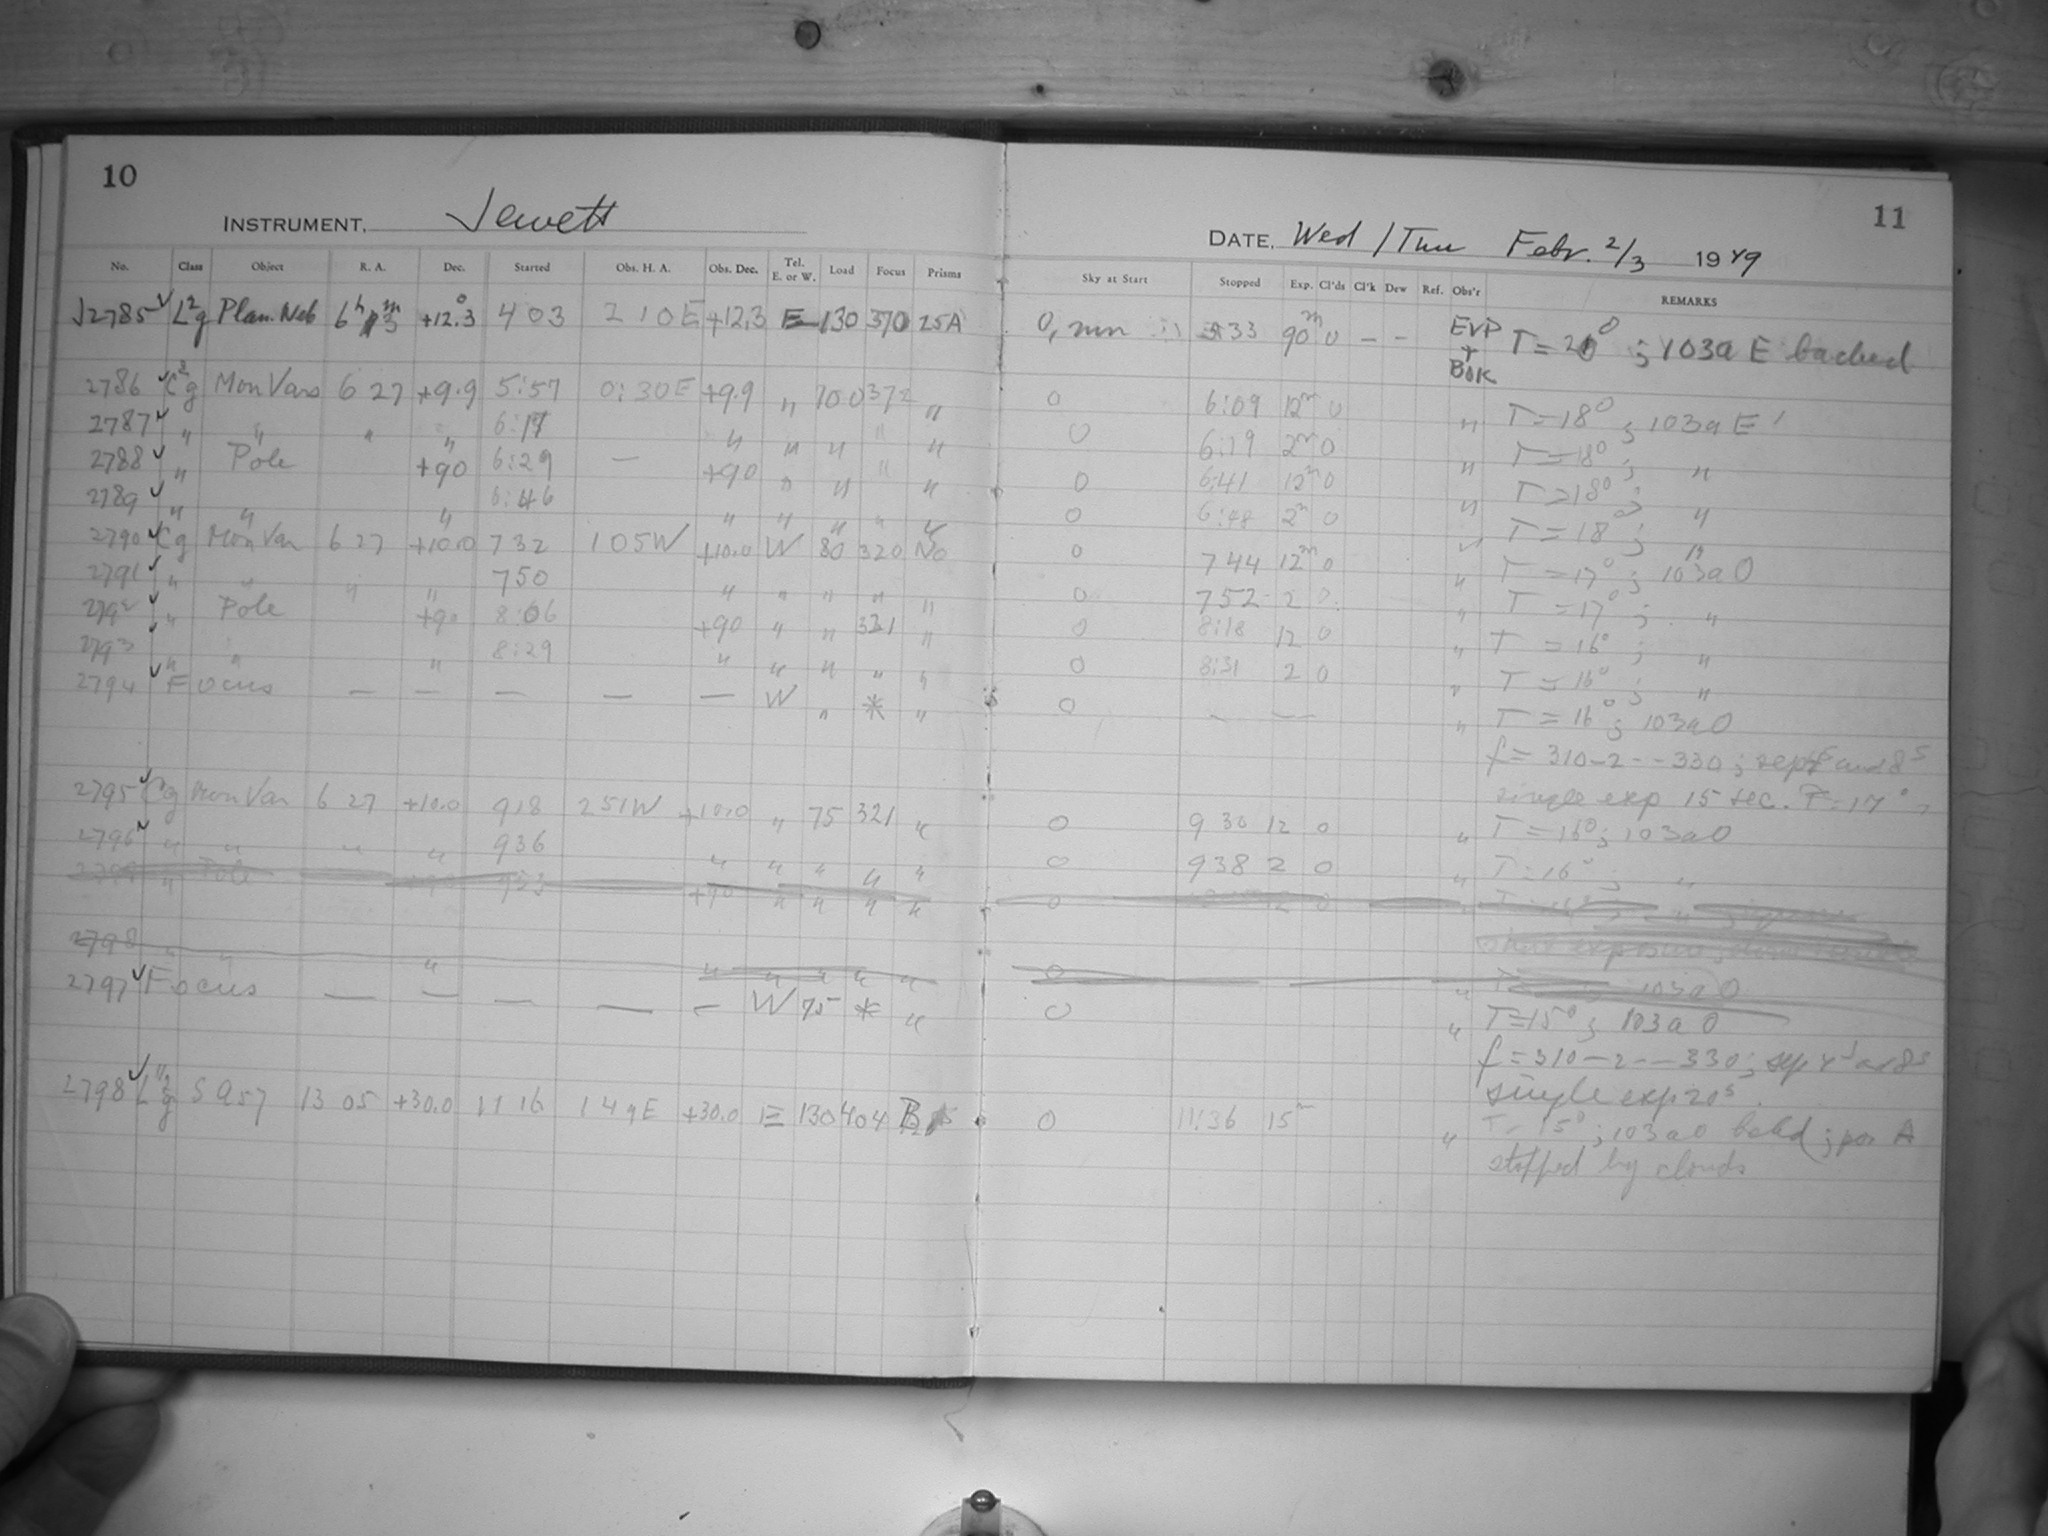 10
INSTRUMENT, Jewett
No. Class Object R. A. Dec. Started Obs. H. A. Obs. Dec. Tel. E. or W. Load Focus Prisms
J2785 L²g Plan. Neb 6h m3 +12.3 403 210E +12.3 E 130 370 25A
2786 C³g Mon Vars 6 27 +9.9 5:57 0:30E +9.9 " 100 372 "
2787 " " " " 6:17 " " " " "
2788 " Pole +90 6:29 — +90 " " " "
2789 " " " 6:46 " " " " "
2790 Cg Mon Var 6 27 +10.0 732 105W +10.0 W 80 320 No
2791 " " " " 750 " " " " "
2792 " Pole +90 8:06 +90 " " 321 "
2793 " " " 8:29 " " " " "
2794 Focus — — — — — W " * "
2795 Cg Mon Var 6 27 +10.0 918 251W +10.0 " 75 321 "
2796 " " " " 936 " " " " "
2797 " Pole +90 953 +90 " " " "
2798 " " " " " " " "
2797 Focus — — — — — W 75 * "
2798 L²g SA57 13 05 +30.0 11 16 149E +30.0 E 130 404 B
11
DATE, Wed / Thu Febr. 2/3 1949
Sky at Start Stopped Exp. Cl'ds Cl'k Dew Ref. Obs'r REMARKS
0, 533 90m 0 — — EVP + BJK T = 20° ; 103a E backed
0 6:09 12m 0 " T = 18° ; 103a E
0 6:19 2m 0 " T = 18° ; "
0 6:41 12m 0 " T = 18° ; "
0 6:48 2m 0 " T = 18° ; "
0 744 12m 0 " T = 17° ; 103a O
0 752 2 0 " T = 17° ; "
0 8:18 12 0 " T = 16° ; "
0 8:31 2 0 " T = 16° ; "
0 — — " T = 16° ; 103a O
f = 310-2--330 ; sep 4s and 8s
single exp 15 sec. T = 17°
0 930 12 0 " T = 16° ; 103a O
0 938 2 0 " T = 16° ; "
0 12 0 "
0 " 103a O
0 " T = 15° ; 103a O
f = 310-2--330 ; sep 4s and 8s
single exp 20s.
0 11:36 15m " T = 15° ; 103a O bakd ; par A
stopped by clouds